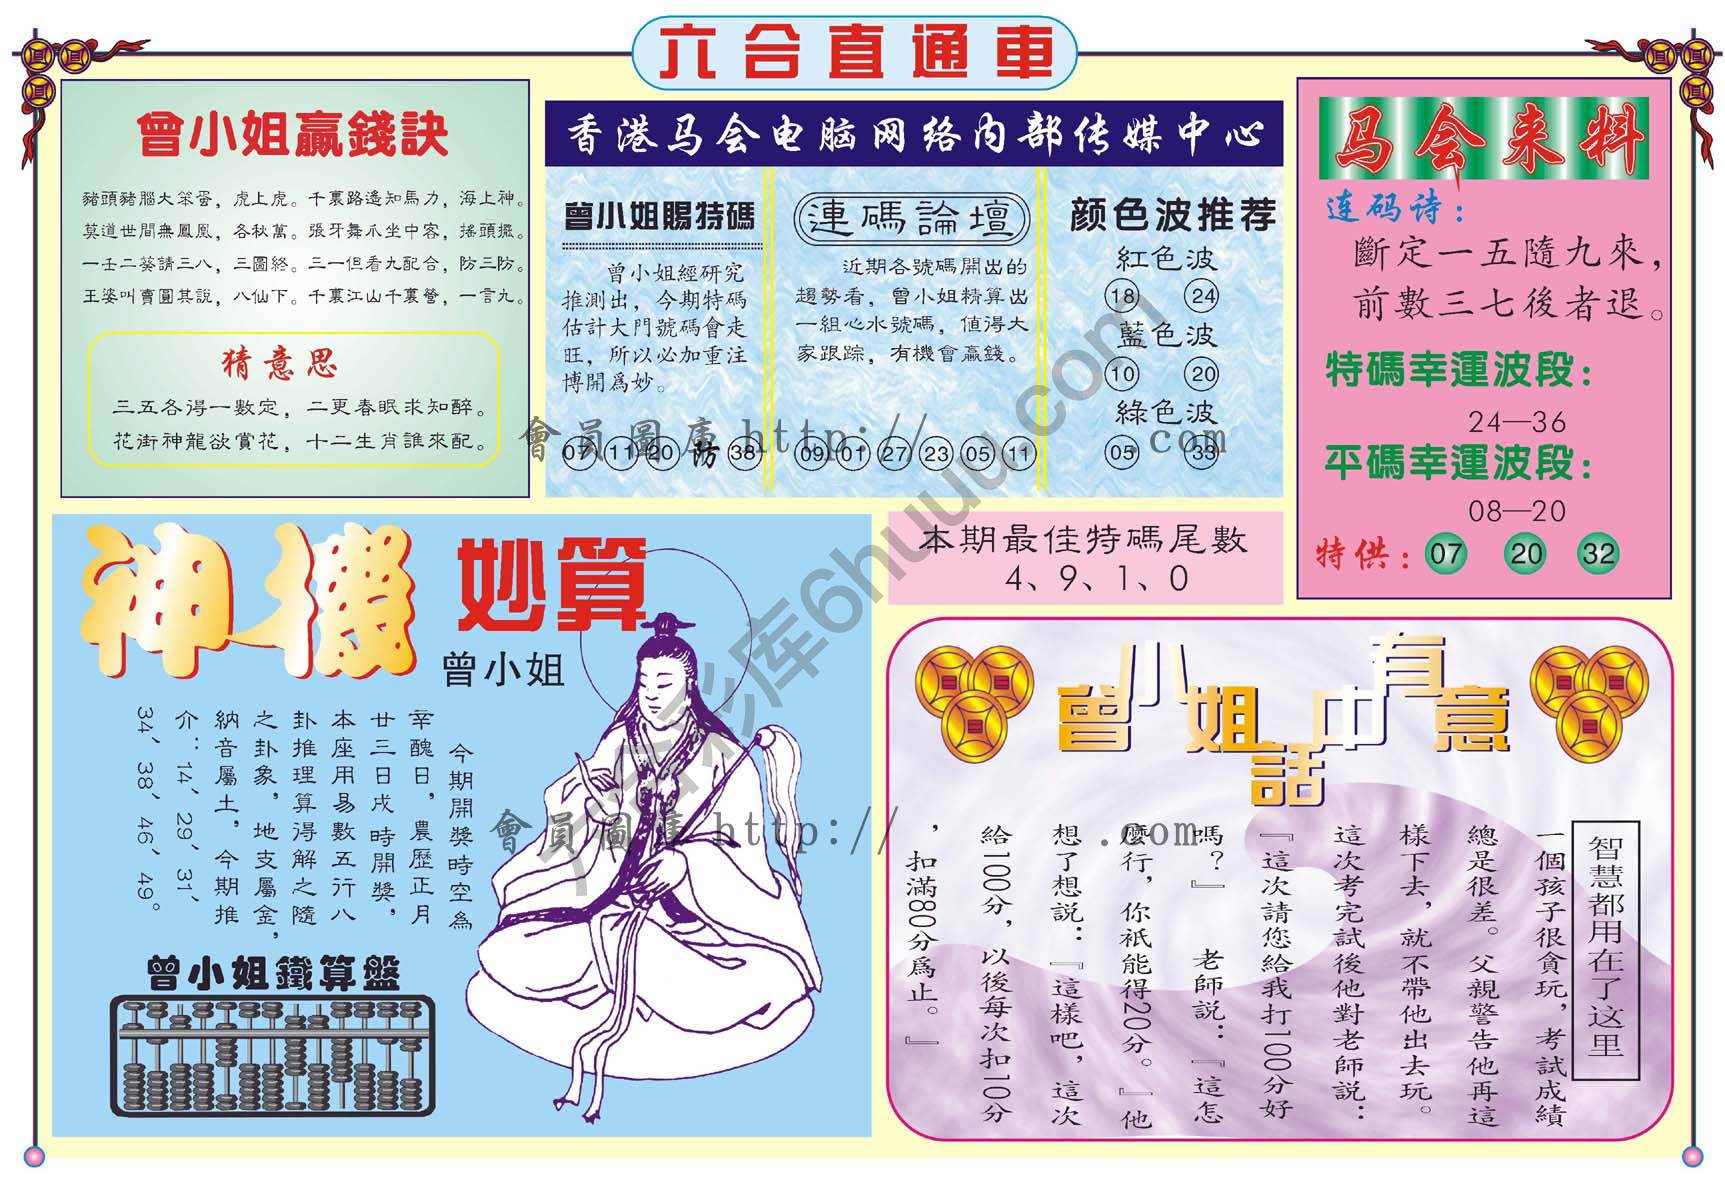 六合直通車
曾小姐贏錢訣
豬頭豬腦大笨蛋，虎上虎。千裏路遙知馬力，海上神。
莫道世間無鳳凰，各秋萬。張牙舞爪坐中客，搖頭擺。
一壬二葵請三八，三圖終。三一但看九配合，防三防。
王婆叫賣圓其説，八仙下。千裏江山千裏營，一言九。
猜意思
三五各得一數定，二更春眠求知醉。
花街神龍欲賞花，十二生肖誰來配。
香港马会电脑网络内部传媒中心
曾小姐賜特碼
曾小姐經研究
推測出，今期特碼
估計大門號碼會走
旺，所以必加重注
博開爲妙。
07 11 20 防 38
連碼論壇
近期各號碼開出的
趨勢看，曾小姐精算出
一組心水號碼，值得大
家跟踪，有機會贏錢。
09 01 27 23 05 11
颜色波推荐
紅色波
18 24
藍色波
10 20
綠色波
05 33
马会来料
连码诗：
斷定一五隨九來，
前數三七後者退。
特碼幸運波段：
24—36
平碼幸運波段：
08—20
特供：07 20 32
本期最佳特碼尾數
4、9、1、0
神機妙算
曾小姐
今期開獎時空為
辛醜日，農歷正月
廿三日戌時開獎，
本座用易數五行八
卦推理算得解之隨
之卦象，地支屬金，
納音屬土，今期推
介：14、29、31、
34、38、46、49。
曾小姐鐵算盤
曾小姐話中有意
智慧都用在了这里
一個孩子很貪玩，考試成績
總是很差。父親警告他再這
樣下去，就不帶他出去玩。
這次考完試後他對老師説：
『這次請您給我打100分好
嗎？』 老師説：『這怎
麼行，你衹能得20分。』他
想了想説：『這樣吧，這次
給100分，以後每次扣10分
，扣滿80分爲止。』
會員圖庫 http:// .com
會員圖庫 http:// .com
六合彩库6huuu.com